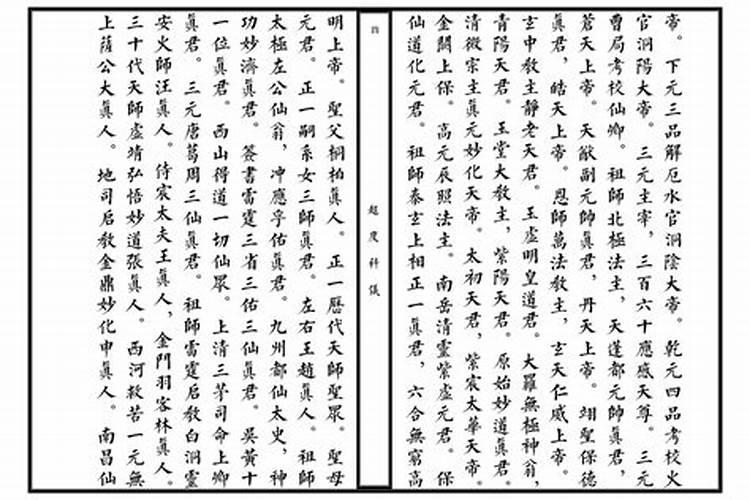 帝。下元三品解厄水官洞陰大帝。乾元四品考校火
官洞陽大帝。三元主宰，三百六十應感天尊。三元
曹局考校仙卿。祖師北極法主，天蓬都元帥眞君，
蒼天上帝。天猷副元帥眞君，丹天上帝。翊聖保德
眞君，皓天上帝。恩師萬法敎主，玄天仁威上帝。
玄中敎主靜老天君。玉虛明皇道君。大羅無極神翁，
青陽天君。玉堂大敎主，紫陽天君。原始妙道眞君。
清微宗主眞元妙化天帝。太初天君，紫宸太華天帝。
金闕上保。高元辰照法主。南岳清靈紫虛元君。保
仙道化元君。祖師泰玄上相正一眞君，六合無窮高
四
超度科儀
明上帝。聖父桐柏眞人。正一歷代天師聖眾。聖母
元君。正一嗣系女三師眞君。左右王趙眞人。祖師
太極左公仙翁，冲應孚佑眞君。九州都仙太史，神
功妙濟眞君。簽書雷霆三省三佑三仙眞君。吳黃十
一位眞君。西山得道一切仙眾。上清三茅司命上卿
眞君。三元唐葛周三仙眞君。祖師雷霆启敎白洞靈
安火師汪眞人。侍宸太夫王眞人，金門羽客林眞人。
三十代天師虛靖弘悟妙道張眞人。西河救苦一元無
上薩公大眞人。地司启敎金鼎妙化申眞人。南昌仙